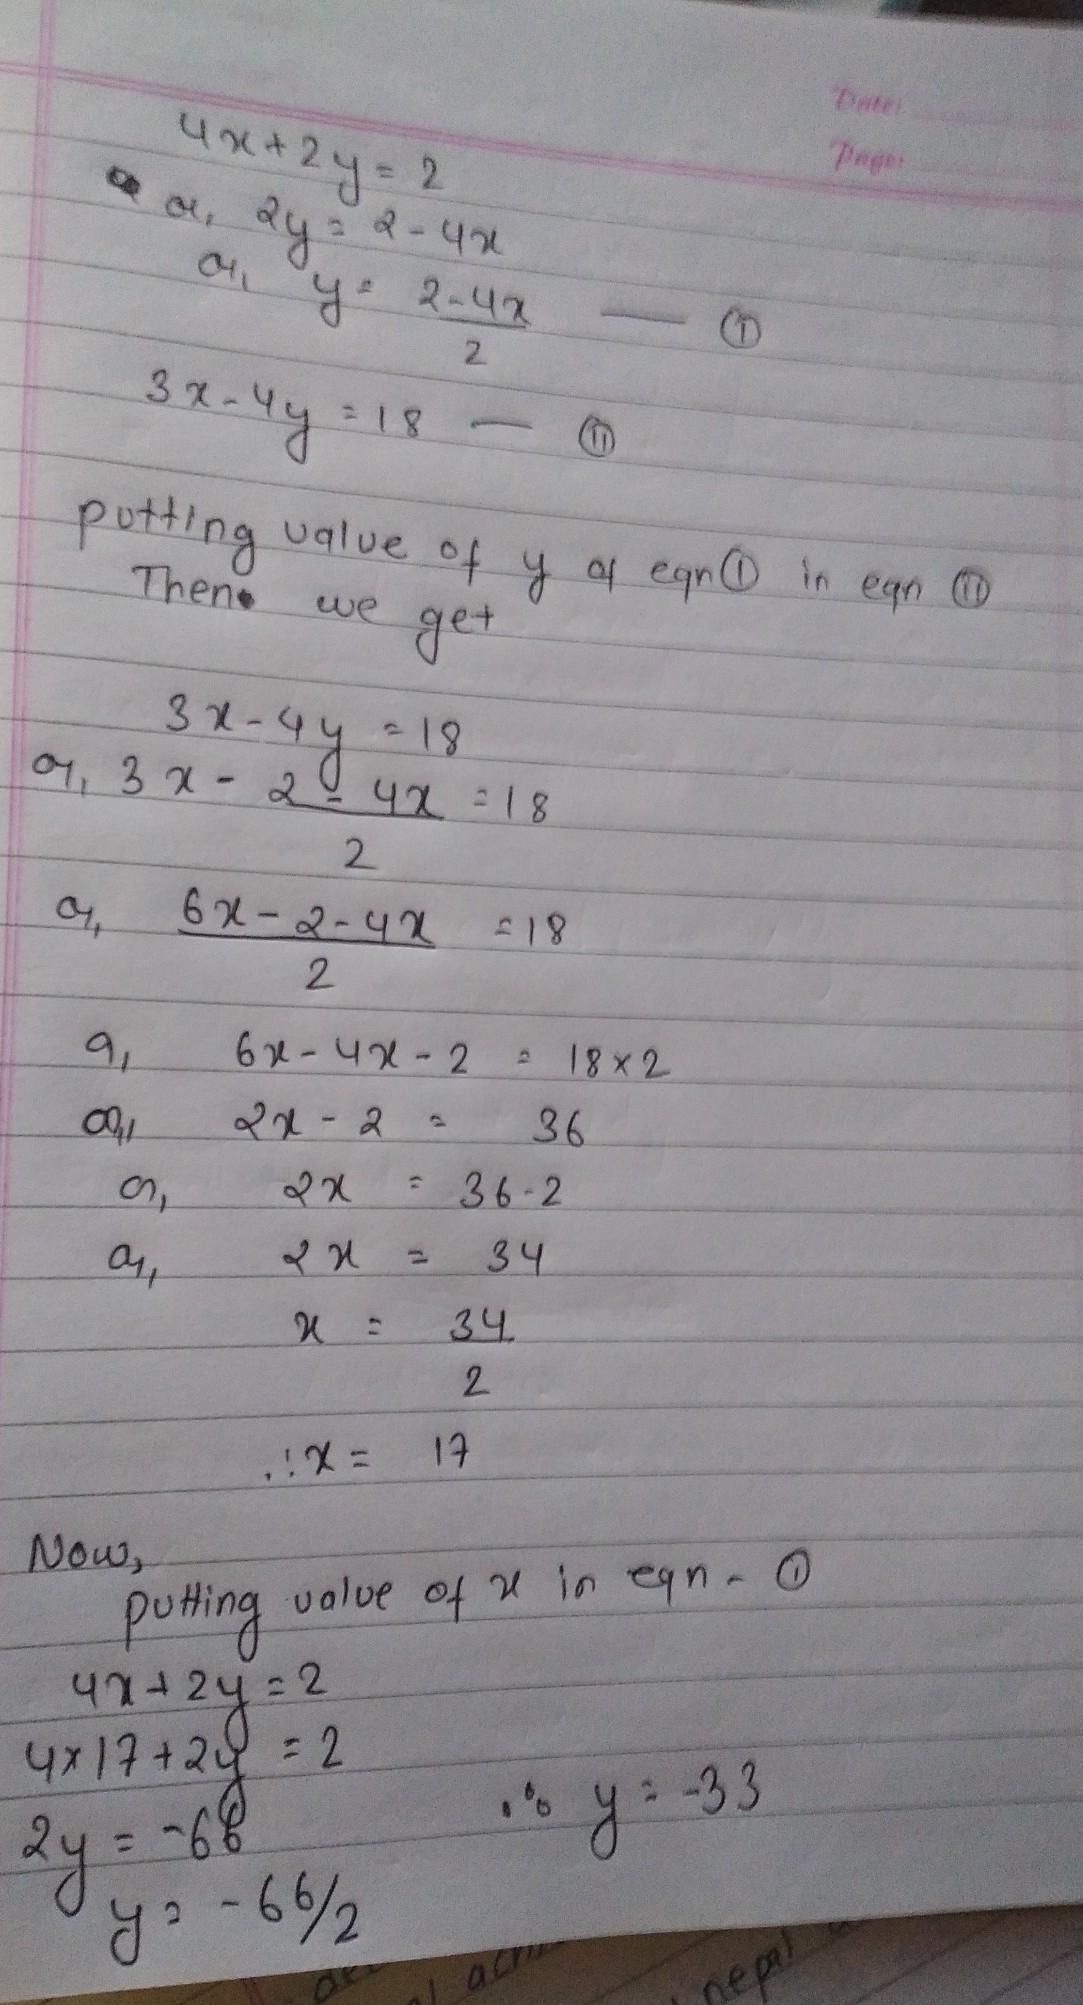 Date:
Page:
4x + 2y = 2
or, 2y = 2 - 4x
or, y = 2-4x — ①
2
3x - 4y = 18 — ⑪
putting value of y of eqn ① in eqn ⑪
Then we get
3x - 4y = 18
or, 3x - 2 - 4x = 18
2
or, 6x - 2 - 4x = 18
2
or, 6x - 4x - 2 = 18 × 2
or, 2x - 2 = 36
or, 2x = 36 - 2
or, 2x = 34
x = 34
2
∴ x = 17
Now,
putting value of x in eqn - ①
4x + 2y = 2
4 × 17 + 2y = 2
2y = -66
∴ y = -33
y = -66/2
nepal